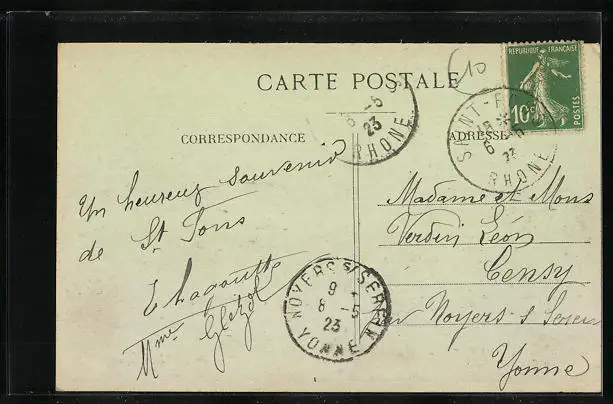 CARTE POSTALE
CORRESPONDANCE
ADRESSE
10
REPUBLIQUE FRANÇAISE
10c
POSTES
SAINT-FO
6 -5
23
RHONE
6 -5
23
RHONE
Un heureux souvenir
de St Fons
Mme
NOYERS S/ SEREIN
9
8 -5
23
YONNE
Madame et Mons
Verdin Léon
Censy
Noyers s Serein
Yonne